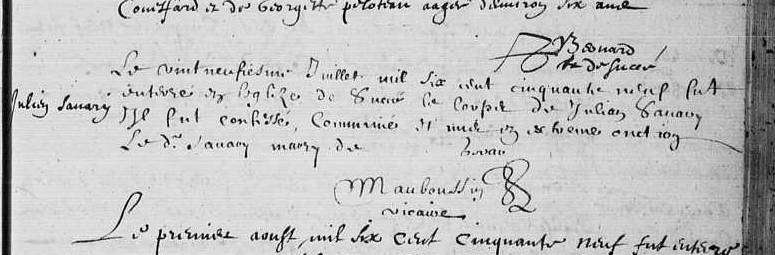 Couettard et de Georgette peloteau aagee denviron six ans
Besnard
rr de Succé
Le vintneufiesme Juillet mil six cent cinquante neuf fut
Julien Savary
enterré en leglize de Succé le corps de Julian Savary
Il fut confessé, Communié et mis en extreme onction
Le dt. Savary mary de
Mauboussin
vicaire
Le premier aoust mil six cent cinquante neuf fut enterré